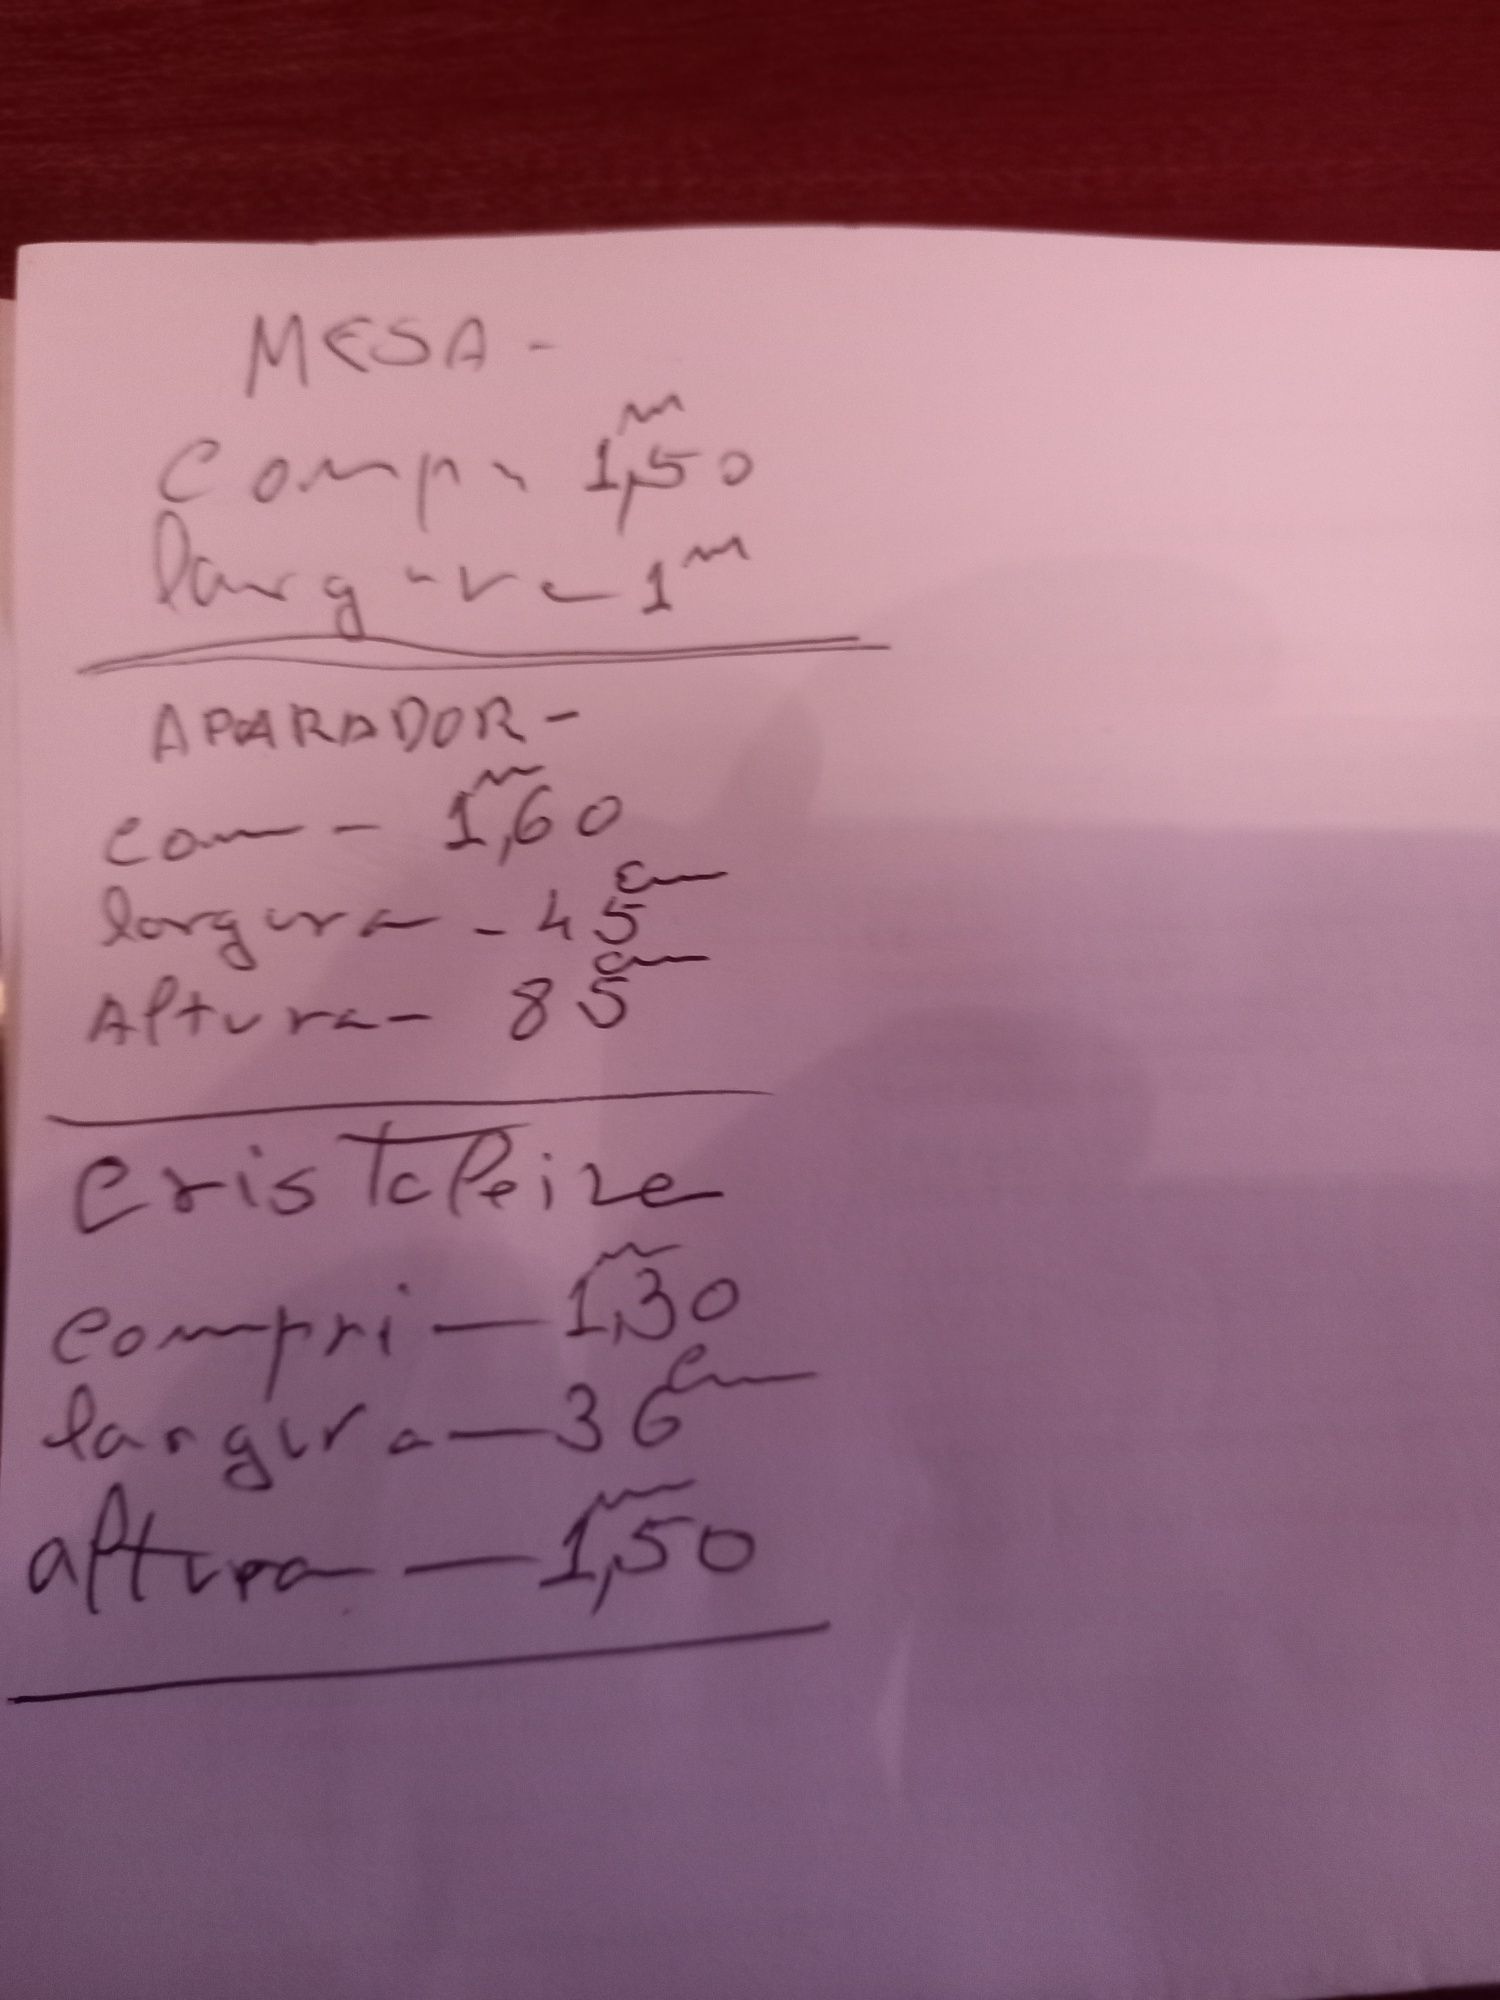 MESA -
Comp. 1,50 m
largura - 1 m
APARADOR -
Com - 1,60 m
largura - 45 cm
Altura - 85 cm
Cristaleira
Compri - 1,30 m
largura - 36 cm
altura - 1,50 m